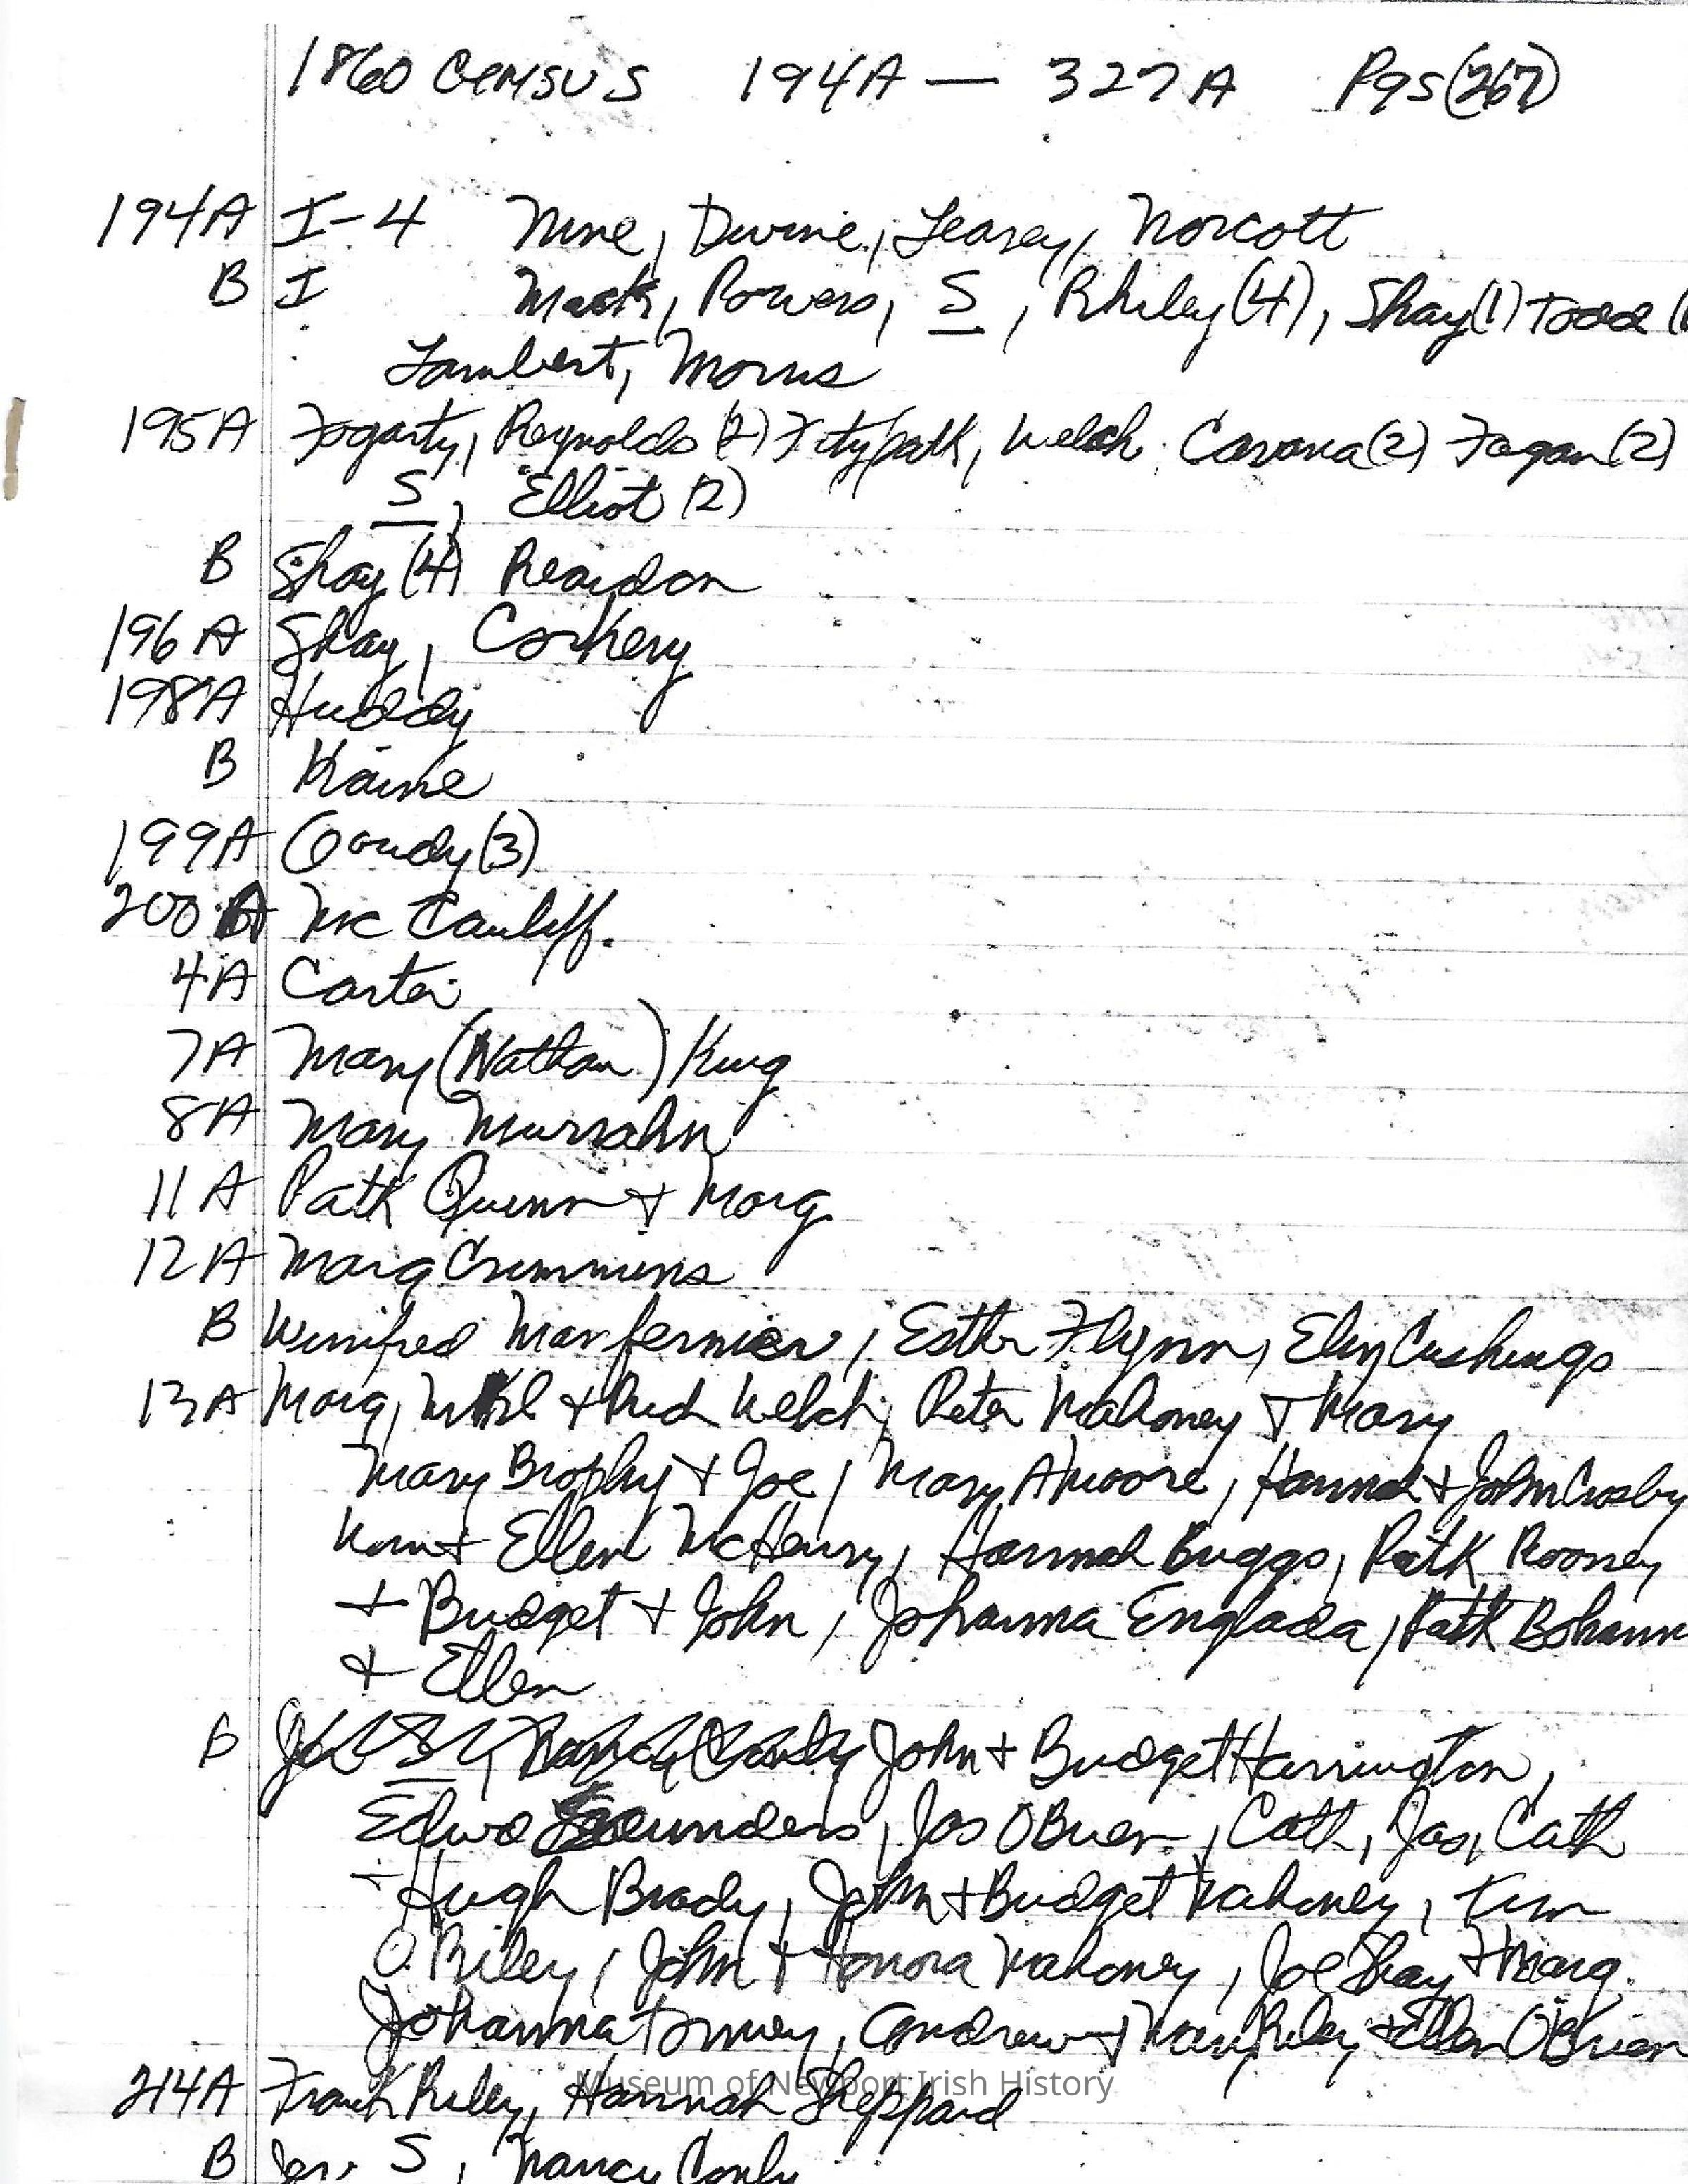 1860 CENSUS 194A — 327A Pgs (267)
194A I-4 Nine, Divine, Learey, Norcott
B I Mack, Powers, S, Rhiley (4), Shay (1) Todd (
Lambert, Morris
195A Fogarty, Reynolds (2) Fitzpatk, Welch, Cavana (2) Fagan (2)
S, Elliot (2)
B Shay (4) Reardon
196A Shay, Corkery
198A Huddy
B Kaine
199A Goudy (3)
200A McCauliff.
4A Carter
7A Mary (Nathan) King
8A Mary
11A Patk Quinn + Marg
12A Marg Crimmins
B Winifred, Esther Flynn, Eliz Cushings
13A Marg, + Welch, Peter Mahoney + Mary
Mary Brophy + Joe, Mary A Moore, Hannah + John Crosby
Wm + Ellen McHenry, Hannah Buggs, Patk Rooney
+ Bridget + John, Johanna Englada, Patk Bohann
+ Ellen
B John + Bridget Harrington,
Edwd Saunders, Jas OBrien, Cath, Jas, Cath
+ Hugh Brady, John + Bridget Mahoney, Tim
O.Riley, John + Honora Mahoney, Joe Shay + Marg.
Johanna Tormey, Andrew + Mary Riley, + Ellen O'Brien
214A Frank Riley, Hannah Sheppard
Museum of Newport Irish History
B Jer. S, Nancy Conly